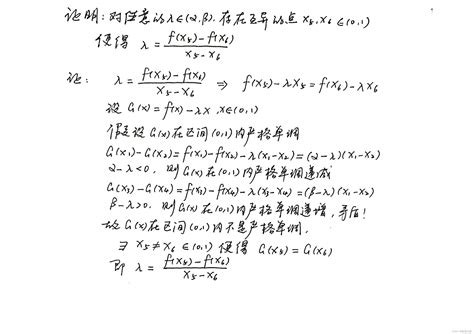 证明: 对任意的 λ∈(α,β). 存在互异的点 x₅,x₆ ∈(0,1)
使得 λ = f(x₅)-f(x₆) / x₅-x₆
证: λ = f(x₅)-f(x₆) / x₅-x₆ ⇒ f(x₅)-λx₅=f(x₆)-λx₆
设 G(x)=f(x)-λx ,x∈(0,1)
假定设 G(x)在区间(0,1)内严格单调
G(x₁)-G(x₂)=f(x₁)-f(x₂)-λ(x₁-x₂)=(α-λ)(x₁-x₂)
α-λ<0, 则 G(x)在(0,1)内严格单调递减
G(x₃)-G(x₄)=f(x₃)-f(x₄)-λ(x₃-x₄)=(β-λ)(x₁-x₂)
β-λ>0. 则 G(x)在(0,1)内严格单调递增, 矛盾!
故 G(x)在区间(0,1)内不是严格单调,
∃ x₅≠x₆ ∈(0,1) 使得 G(x₅)=G(x₆)
即 λ = f(x₅)-f(x₆) / x₅-x₆